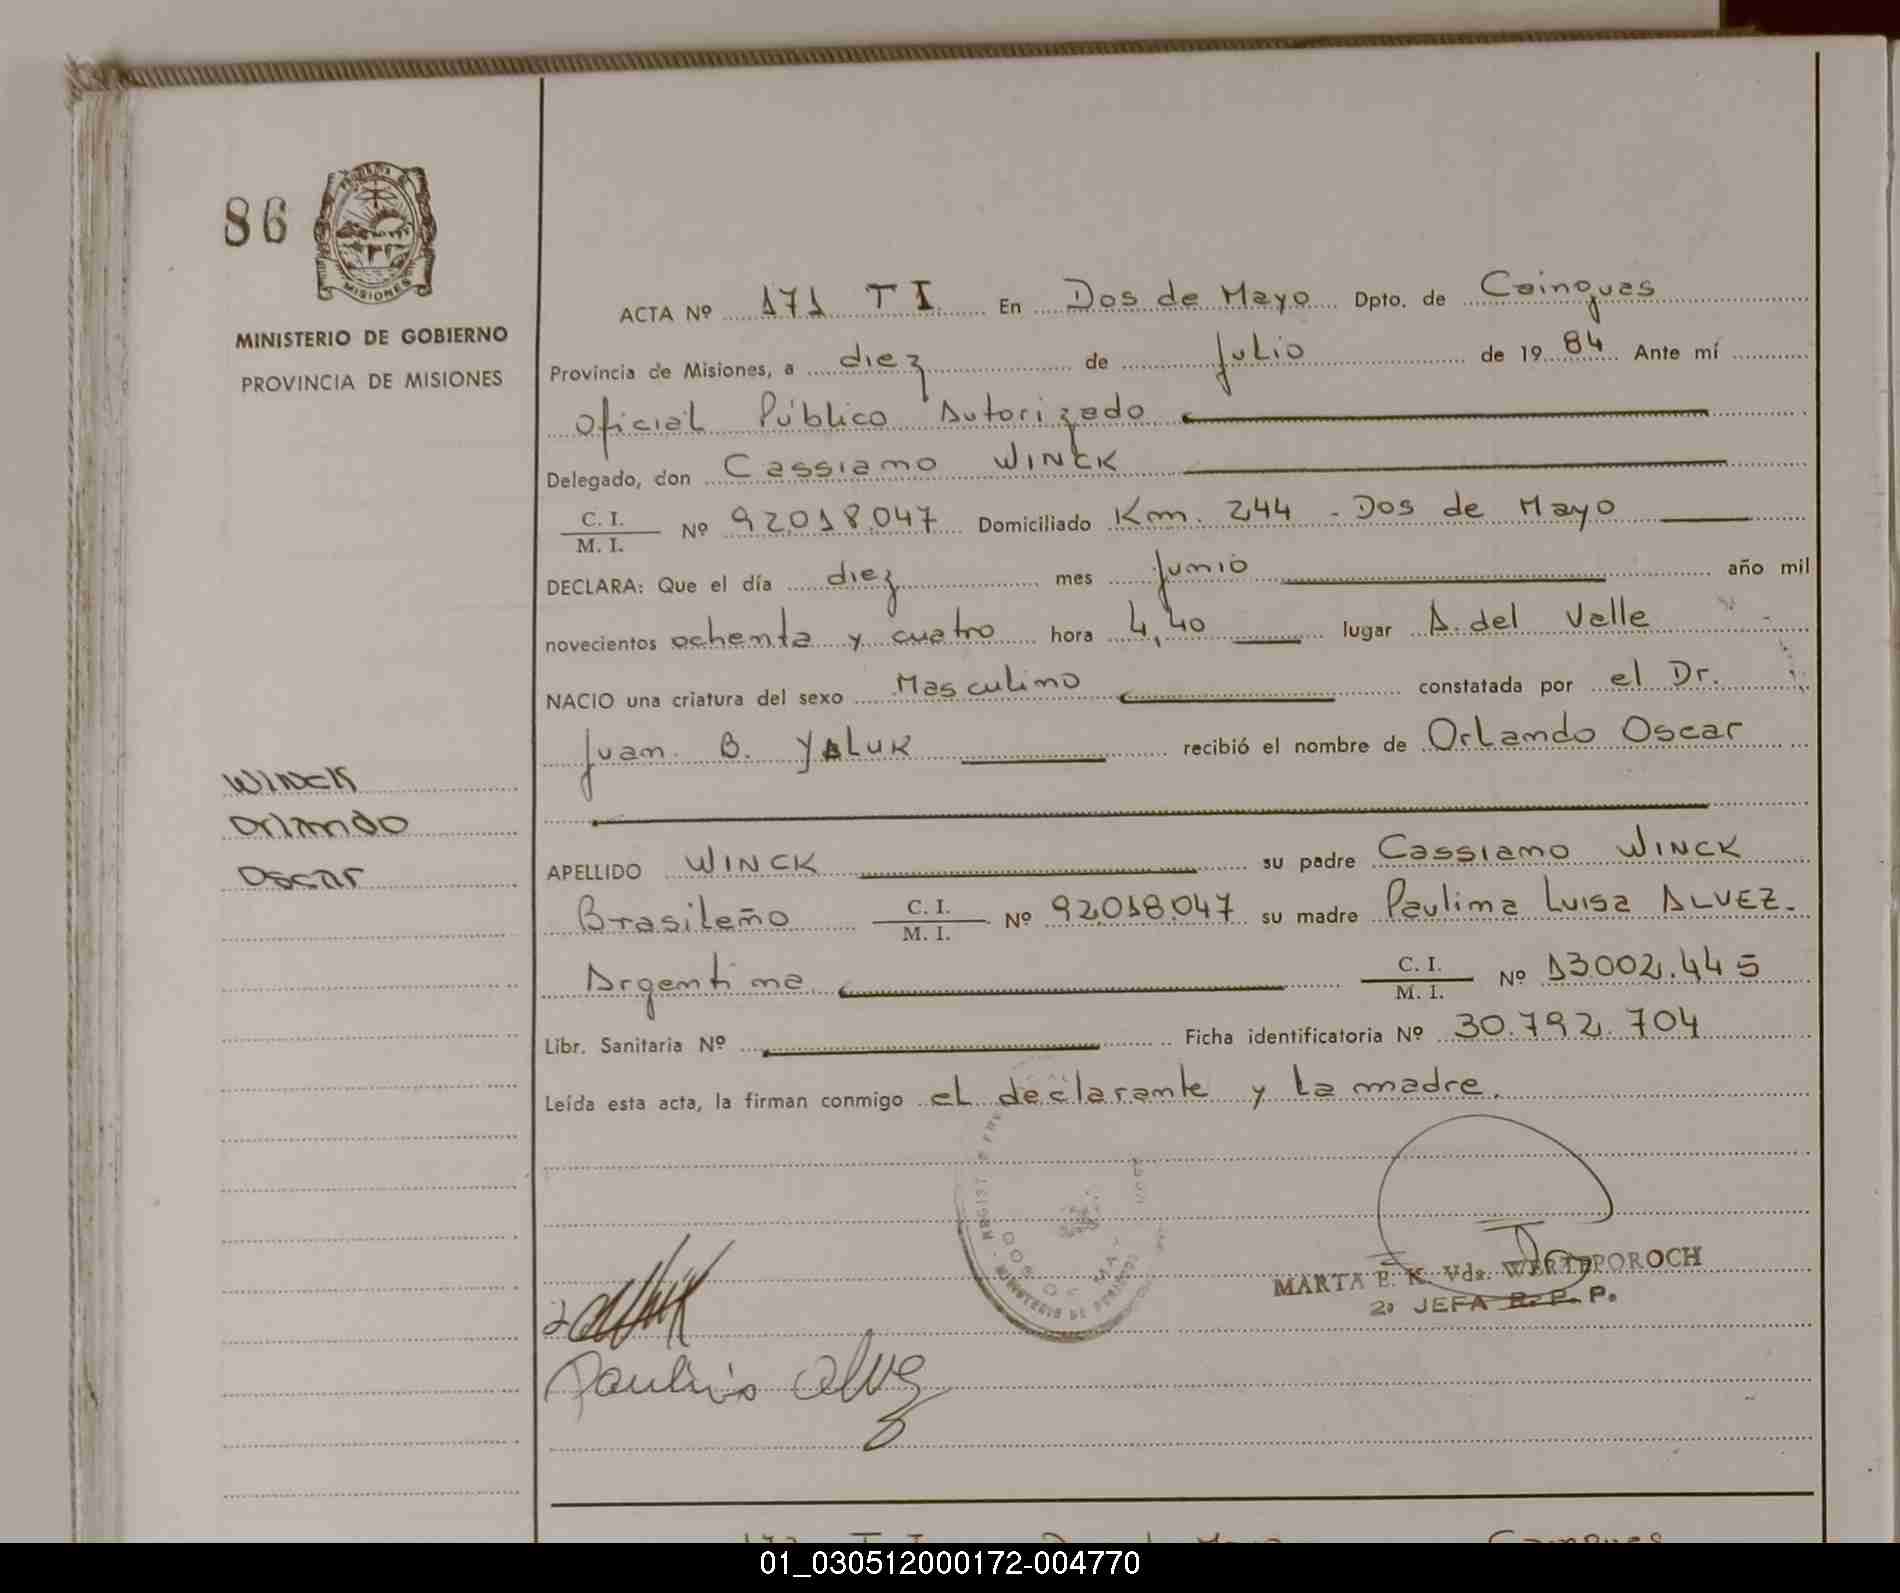 86
MISIONES
MINISTERIO DE GOBIERNO
PROVINCIA DE MISIONES
WINCK
Orlando
Oscar
ACTA Nº 171 T I En Dos de Mayo Dpto. de Cainguas
Provincia de Misiones, a diez de Julio de 1984 Ante mí
Oficial Público Autorizado
Delegado, don Cassiamo WINCK
C. I. / M. I. Nº 92.018.047 Domiciliado Km. 244 - Dos de Mayo
DECLARA: Que el día diez mes Junio año mil
novecientos ochenta y cuatro hora 4,40 lugar A. del Valle
NACIO una criatura del sexo Masculino constatada por el Dr.
Juan B. YALUK recibió el nombre de Orlando Oscar
APELLIDO WINCK su padre Cassiamo WINCK
Brasileño C. I. / M. I. Nº 92.018.047 su madre Paulina Luisa ALVEZ.
Argentina C. I. / M. I. Nº 13.002.445
Libr. Sanitaria Nº Ficha identificatoria Nº 30.792.704
Leída esta acta, la firman conmigo el declarante y la madre.
MARTA E. K. Vda. WERTEPOROCH
2º JEFA R. P. P.
Paulina Alvez
01_030512000172-004770